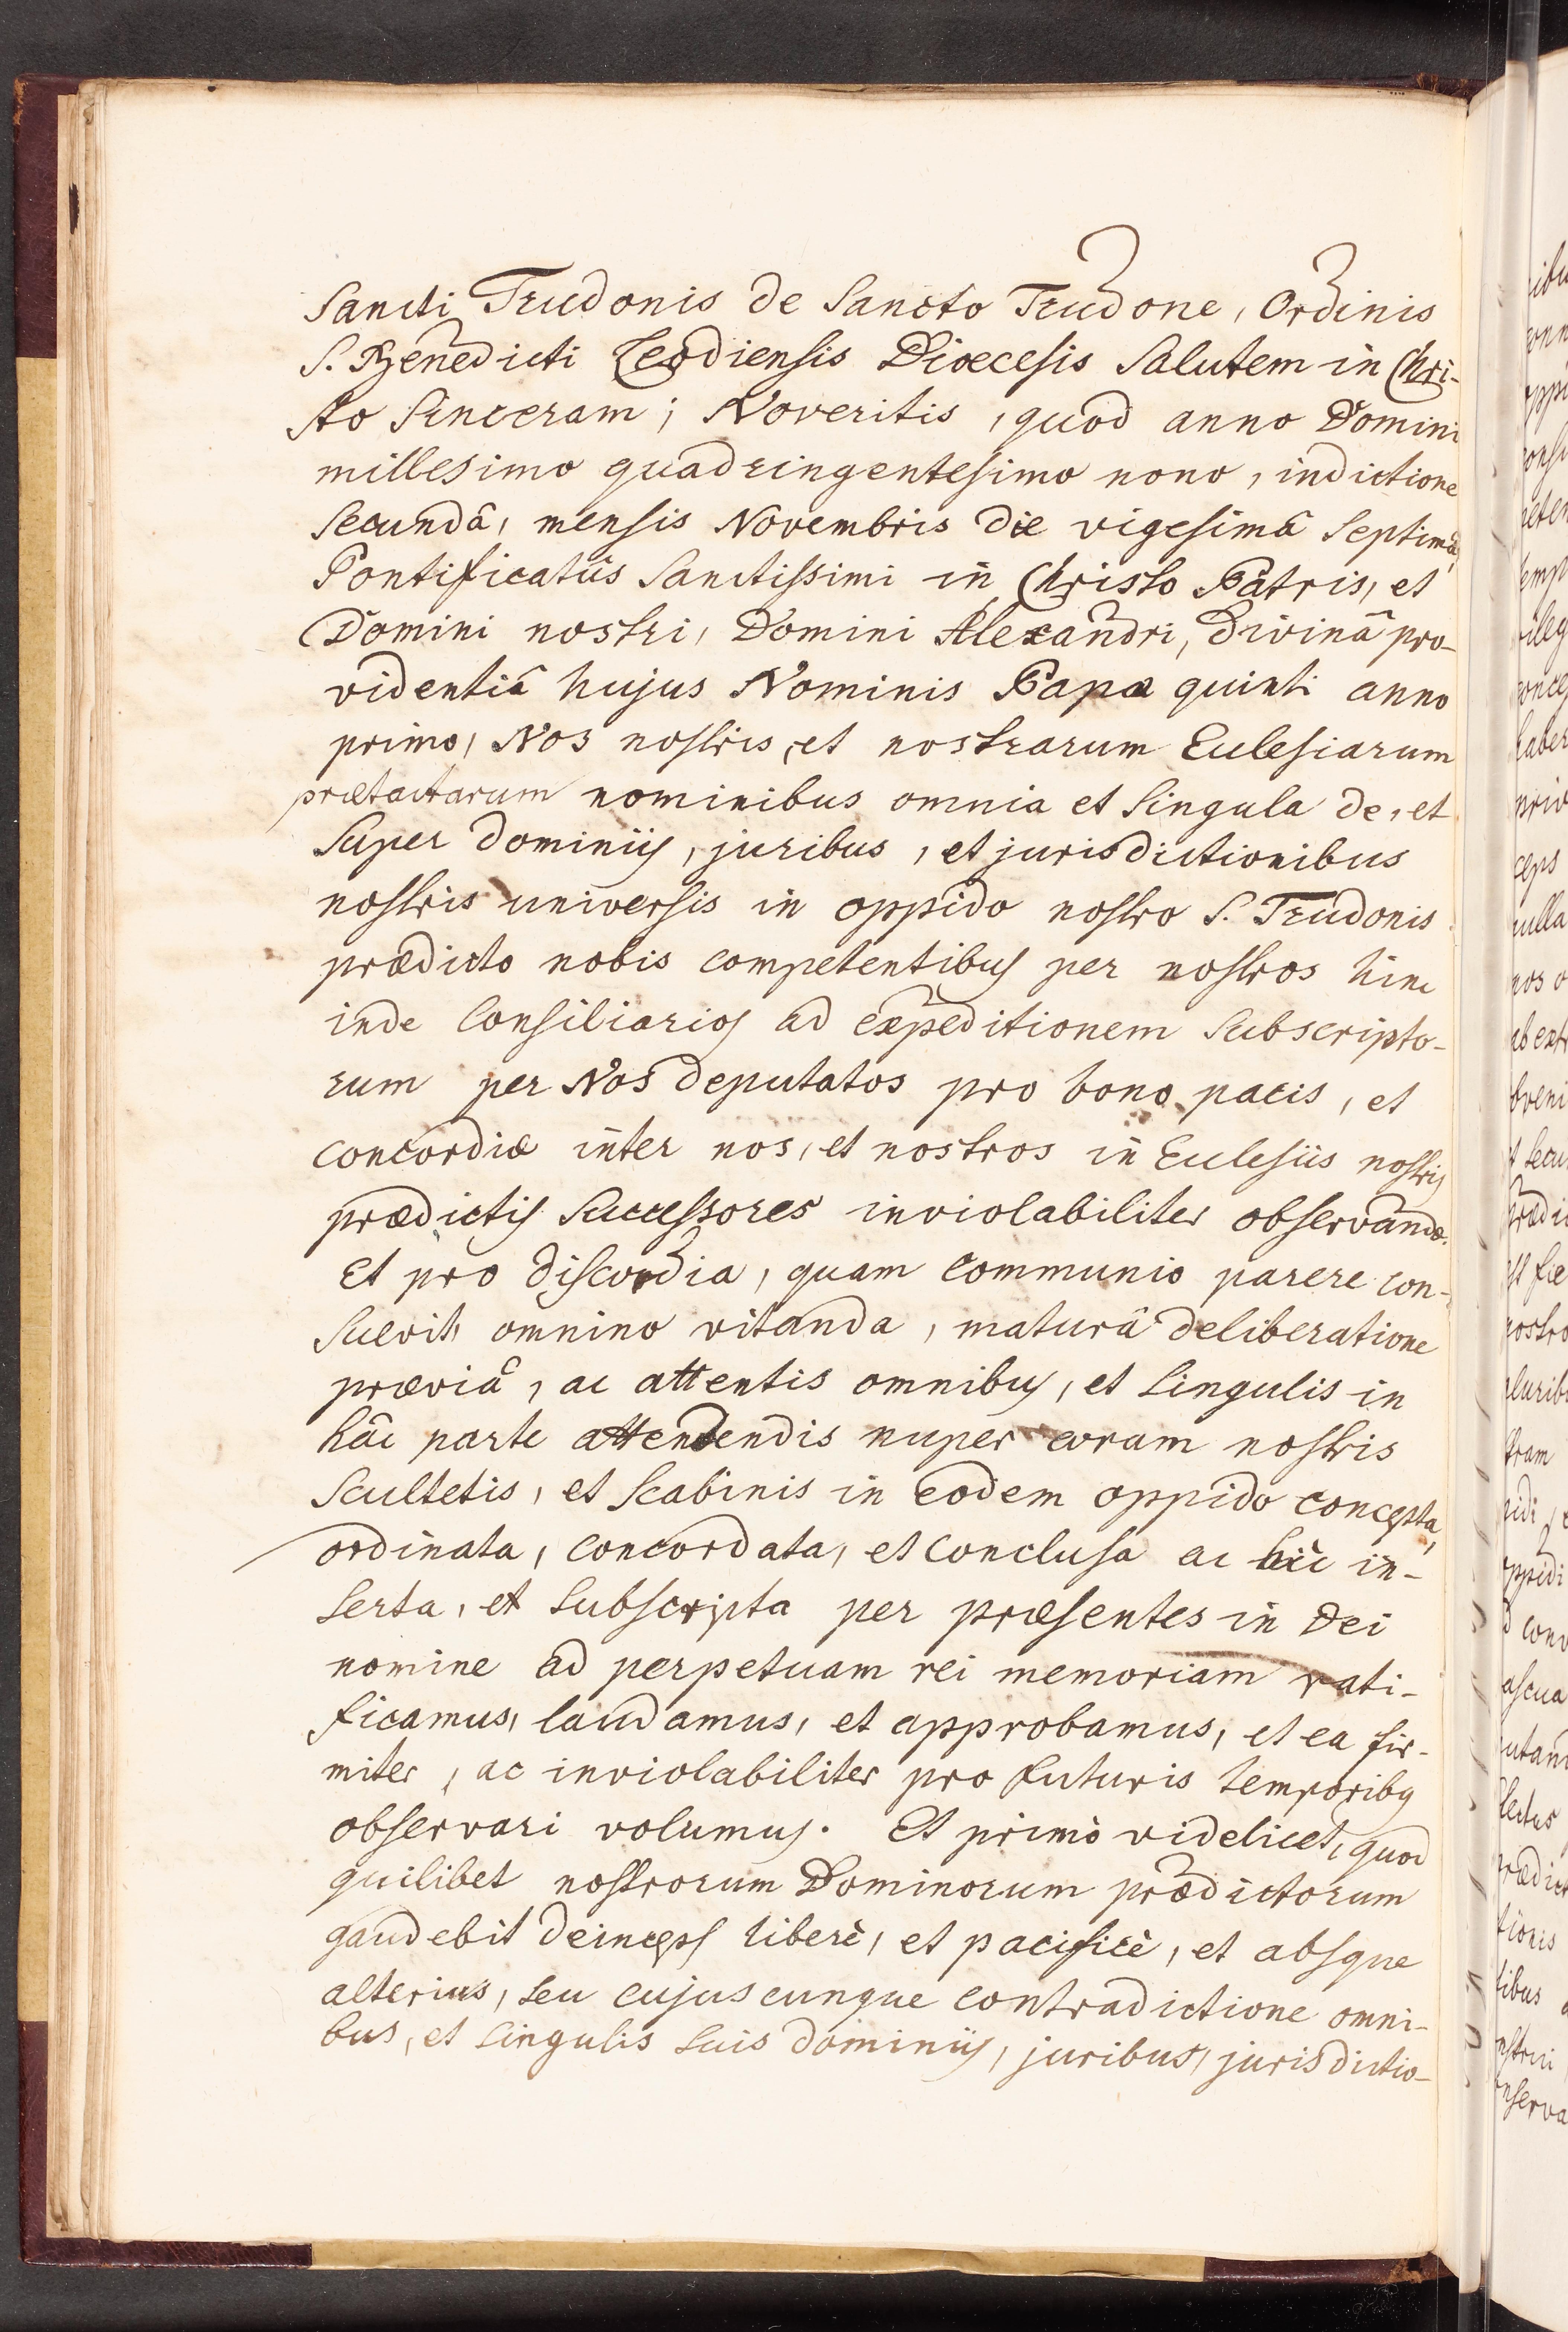 Sancti Trudonis de Sancto Trudone, Ordinis
S. Benedicti Leodiensis Diœcesis Salutem in Chri-
sto Sinceram; Noveritis, quod anno Domini
millesimo quadringentesimo nono, indictione
Secundâ, mensis Novembris die vigesimâ Septimâ,
Pontificatûs Sanctissimi in Christo Patris, et
Domini nostri, Domini Alexandri, divinâ pro-
videntiâ hujus Nominis Papæ quinti anno
primo, Nos nostris, et nostrarum Ecclesiarum
prætactarum nominibus omnia et Singula de, et
Super dominiis, juribus, et jurisdictionibus
nostris universis in oppido nostro S. Trudonis
prædicto nobis competentibus per nostros hinc
inde Consiliarios ad expeditionem Subscripto-
rum per Nos deputatos pro bono pacis, et
concordiæ inter nos, et nostros in Ecclesiis nostris
prædictis Successores inviolabiliter observandæ.
Et pro discordia, quam communio parere con-
Suevit, omnino vitanda, maturâ deliberatione
præviâ, ac attentis omnibus, et Singulis in
hâc parte attendendis nuper coram nostris
Scultetis, et Scabinis in eodem oppido concepta,
ordinata, concordata, et conclusa ac hîc in-
Serta, et Subscripta per præsentes in Dei
nomine ad perpetuam rei memoriam rati-
ficamus, laudamus, et approbamus, et ea fir-
miter, ac inviolabiliter pro futuris temporibus
observari volumus. Et primò videlicet, quod
quilibet nostrorum Dominorum prædictorum
gaudebit deinceps liberè, et pacificè, et absque
alterius, seu cujuscunque contradictione omni-
bus, et Singulis Suis dominiis, juribus, jurisdictio-